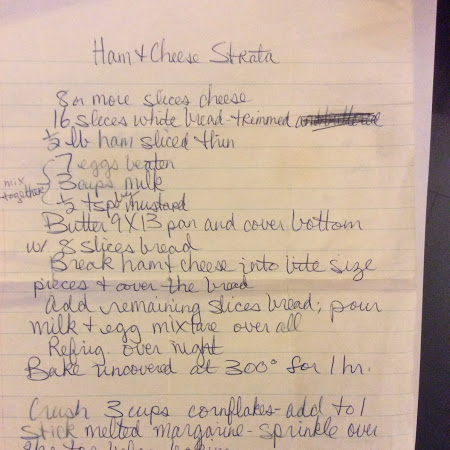 Ham & Cheese Strata
8 or more slices cheese
16 slices white bread - trimmed
1/2 lb ham sliced thin
7 eggs beaten
3 cups milk
1/2 tsp dry mustard
mix together
Butter 9X13 pan and cover bottom
w/ 8 slices bread
Break ham & cheese into bite size
pieces & cover the bread
Add remaining slices bread; pour
milk & egg mixture over all
Refrig. over night
Bake uncovered at 300° for 1 hr.
Crush 3 cups cornflakes - add to 1
stick melted margarine - sprinkle over